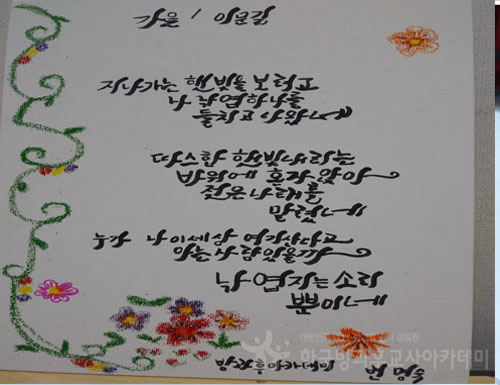 가을 / 이문길
지나가는 햇빛을 보려고
나 낙엽하나를
들치고 나왔네
따스한 햇빛내리는
바위에 혼자 앉아
젖은 나래를
말렸네
누가 나 이세상 여기산다고
아는 사람 있을까
낙엽지는 소리
뿐이네
방과후아카데미
한국방과후교사아카데미